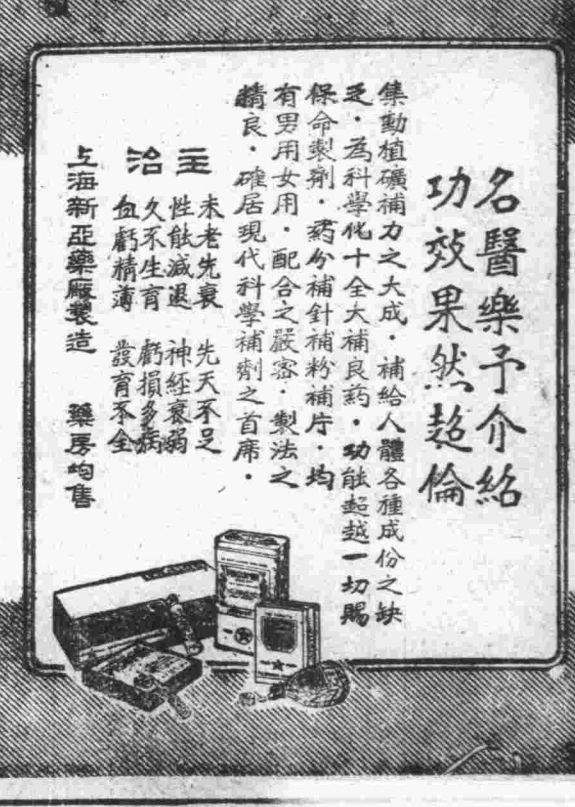 名醫樂予介紹
功效果然超倫
集動植礦補力之大成．補給人體各種成份之缺
乏．為科學化十全大補良药．功能超越一切賜
保命製劑．葯分補針補粉補片．均
有男用女用．配合之嚴密．製法之
精良．確居現代科學補劑之首席．
主治
未老先衰　先天不足
性能減退　神經衰弱
久不生育　虧損多病
血虧精薄　發育不全
上海新亞藥廠製造　藥房均售